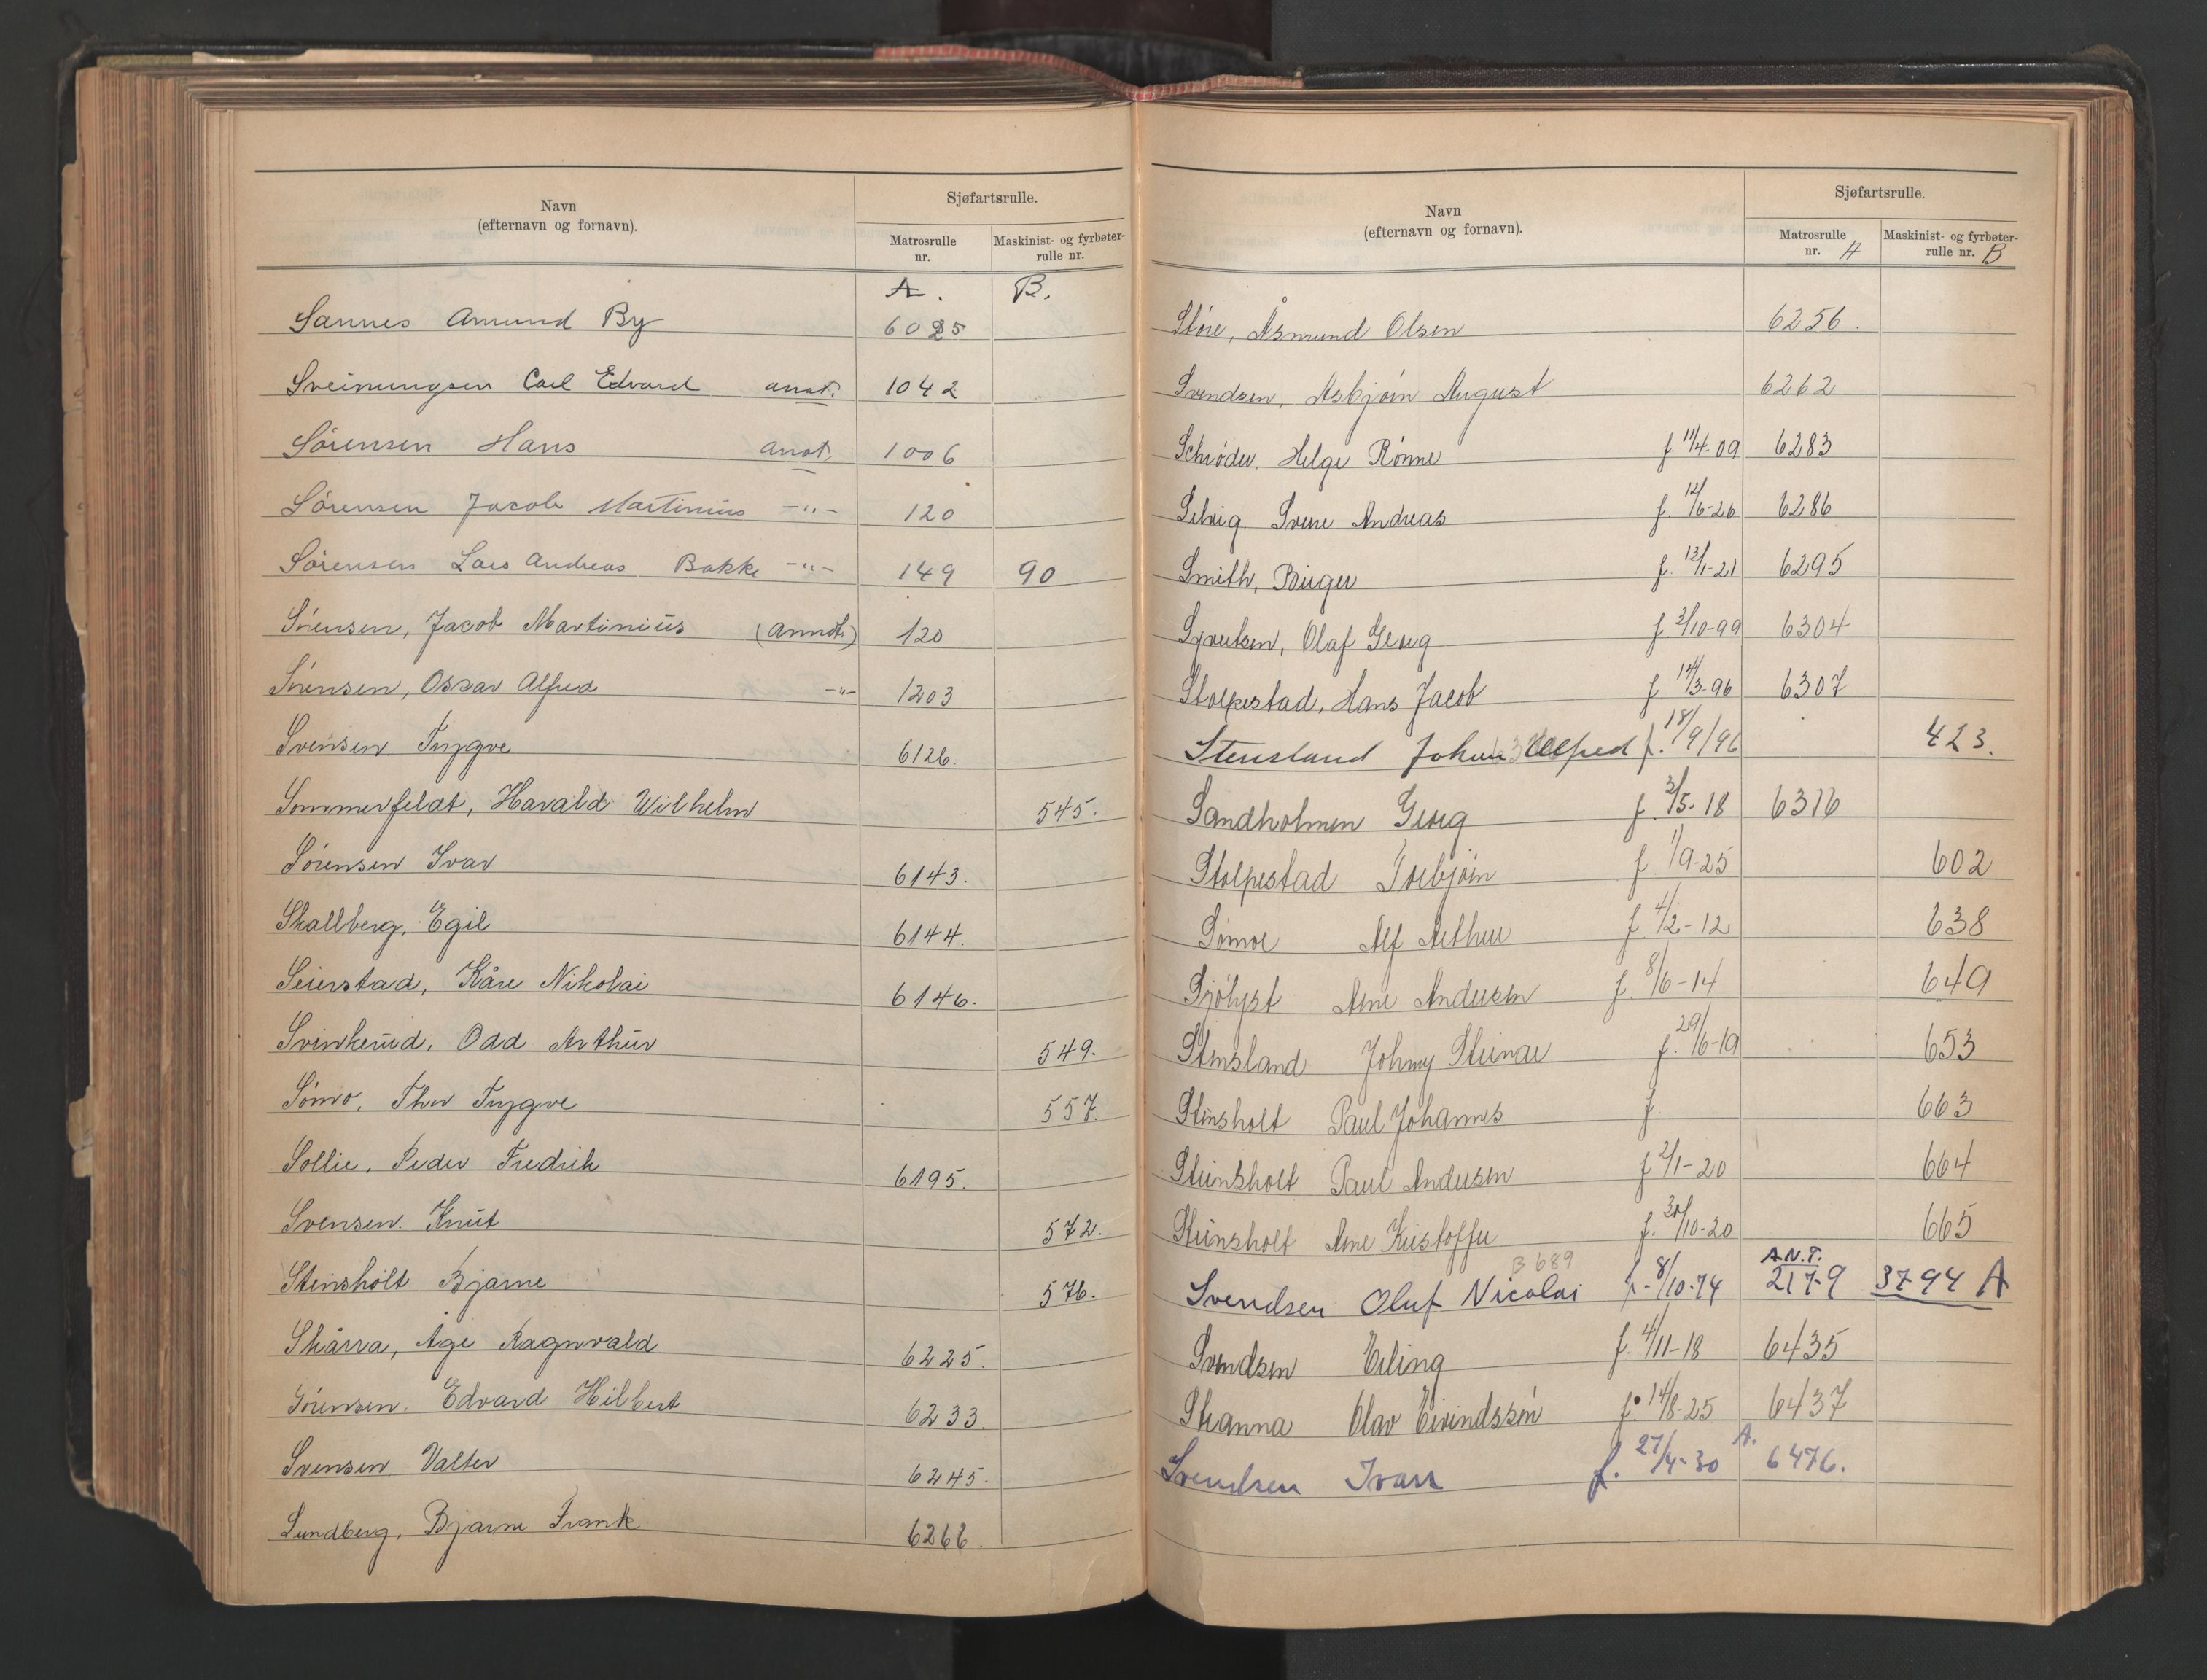 Navn
(efternavn og fornavn).
Sjøfartsrulle.
Matrosrulle nr.
Maskinist- og fyrbøter-rulle nr.
A. B.
Sannes Amund By 6025
Sveinungsen Carl Edvard anot. 1042
Sörensen Hans anot. 1006
Sörensen Jacob Martinius -"- 120
Sörensen Lars Andreas Bakke -"- 149 90
Sörensen, Jacob Martinius (annot.) 120
Sörensen, Oskar Alfred -"- 1203
Svensen Trygve 6126.
Sommerfeldt, Harald Wilhelm 545.
Sörensen Ivar 6143.
Skallberg, Egil 6144.
Seierstad, Kåre Nikolai 6146.
Svinkerud, Odd Arthur 549.
Sömo, Thor Trygve 557.
Sollie, Peder Fredrik 6195.
Svensen. Knut 572.
Stensholt Bjarne 576.
Skårra, Åge Ragnvald 6225.
Sörensen. Edvard Hilbert 6233.
Svensen Valter 6245.
Sundberg, Bjarne Frank 6266.
Navn
(efternavn og fornavn).
Sjøfartsrulle.
Matrosrulle nr. A
Maskinist- og fyrbøter-rulle nr. B
Støre, Åsmund Olsen 6256.
Svendsen, Asbjörn August 6262
Schrøder, Helge Rønne f. 11/4-09 6283
Selvig. Sverre Andreas f. 12/6-26 6286
Smith, Birger f. 13/1-21 6295
Syvertsen, Olaf Georg f. 2/10-99 6304
Stolpestad, Hans Jacob f. 14/3-96 6307
Stensland Johan Alfred f. 18/9/96 423.
Sandholmen Georg f. 3/5-18 6316
Stolpestad Torbjörn f. 1/9-25 602
Sömoe Alf Arthur f. 4/2-12 638
Sjölyst Arne Andersen f. 8/6-14 649
Stensland Johny Steinar f. 29/6-19 653
Stensholt Paul Johannes f. 663
Steinsholt Paul Andersen f 2/1-20 664
Steinsholt Arne Kristoffer f. 30/10-20 665
B 689
Svendsen Oluf Nicolai f.-8/10-74 A.N.T. 2179 3794 A
Svendsen Erling f. 4/11-18 6435
Skanna Olav Eivindssön f. 14/8-25 6437
Svendsen Ivar f. 27/4-30 A. 6476.